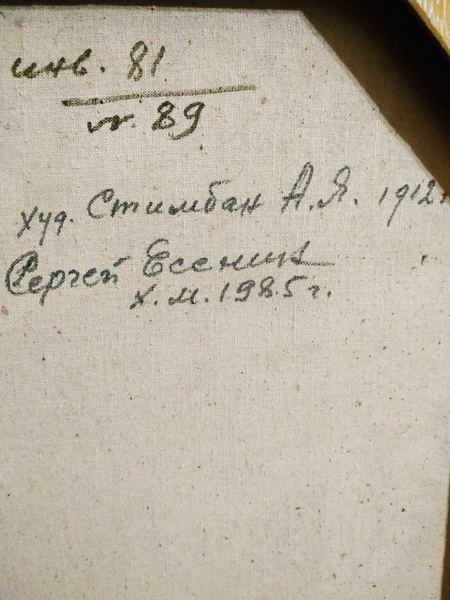 инв. 81
N. 89
худ. Стимбан А.Я. 1912г
Сергей Есенин
х.м. 1985 г.